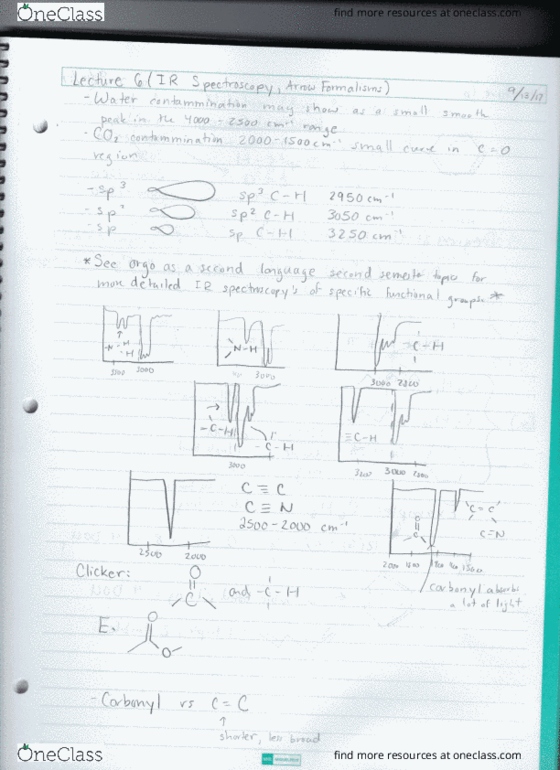 OneClass
find more resources at oneclass.com
Lecture 6 (IR Spectroscopy, Arrow Formalisms)
9/13/17
- Water contammination may show as a small smooth
peak in the 4000 - 2500 cm⁻¹ range
- CO₂ contammination 2000-1500cm⁻¹ small curve in C=O
region
- sp³ sp³ C-H 2950 cm⁻¹
- sp² sp² C-H 3050 cm⁻¹
- sp sp C-H 3250 cm⁻¹
*See orgo as a second language second semester topic for
more detailed IR spectroscopy's of specific functional groups*
N-H
H
3000
N-H
3000
-C-H
3000
-C-H
-C-H
3000
≡C-H
3000
C≡C
C≡N
2500-2000 cm⁻¹
2500 2000
O
C
C=C
C=N
2000
carbonyl absorbs
a lot of light
Clicker:
O
C and -C-H
E.
O
O
- Carbonyl vs C=C
↑
shorter, less broad
OneClass
find more resources at oneclass.com